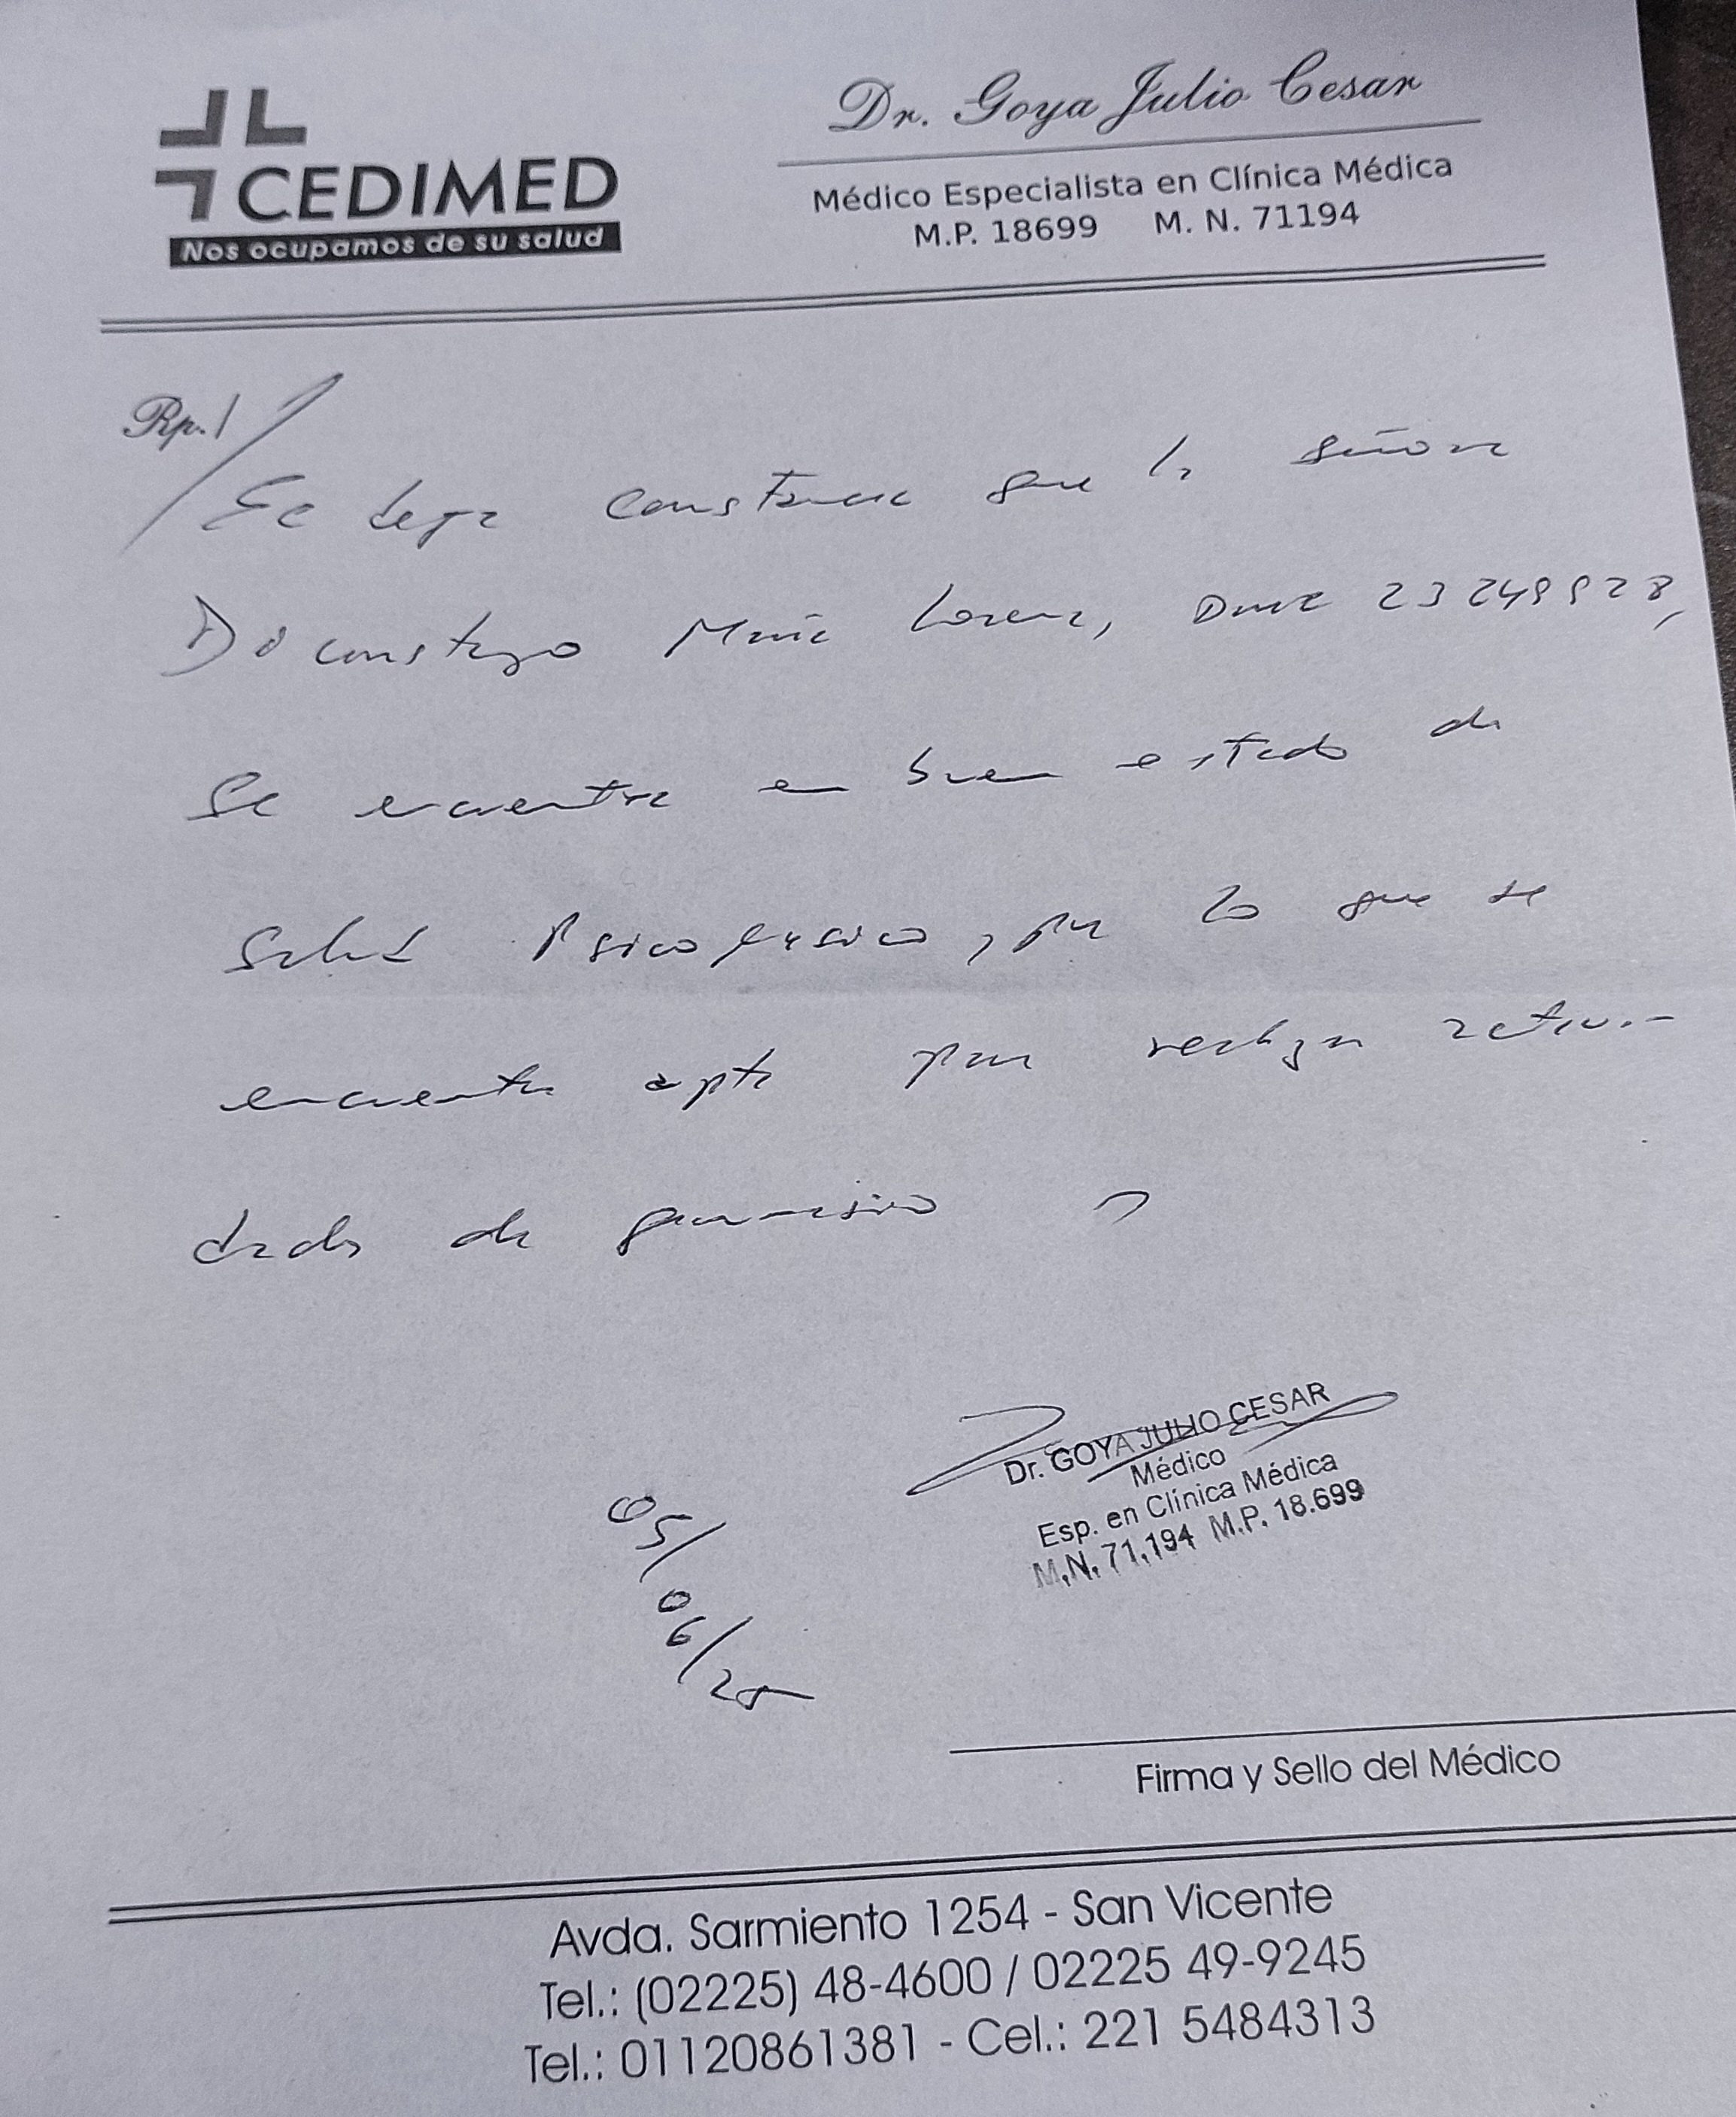 CEDIMED
Nos ocupamos de su salud
Dr. Goya Julio Cesar
Médico Especialista en Clínica Médica
M.P. 18699 M. N. 71194
Rp./
Se deja constancia que la señora
María Lorena, 
se encuentra en buen estado de
salud psicofísico, por lo que se
encuentra apta para realizar activi-
dades de gimnasio
Dr. GOYA JULIO CESAR
Médico
Esp. en Clínica Médica
M.N. 71.194 M.P. 18.699
05/06/25
Firma y Sello del Médico
Avda. Sarmiento 1254 - San Vicente
Tel.: (02225) 48-4600 / 02225 49-9245
Tel.: 01120861381 - Cel.: 221 5484313